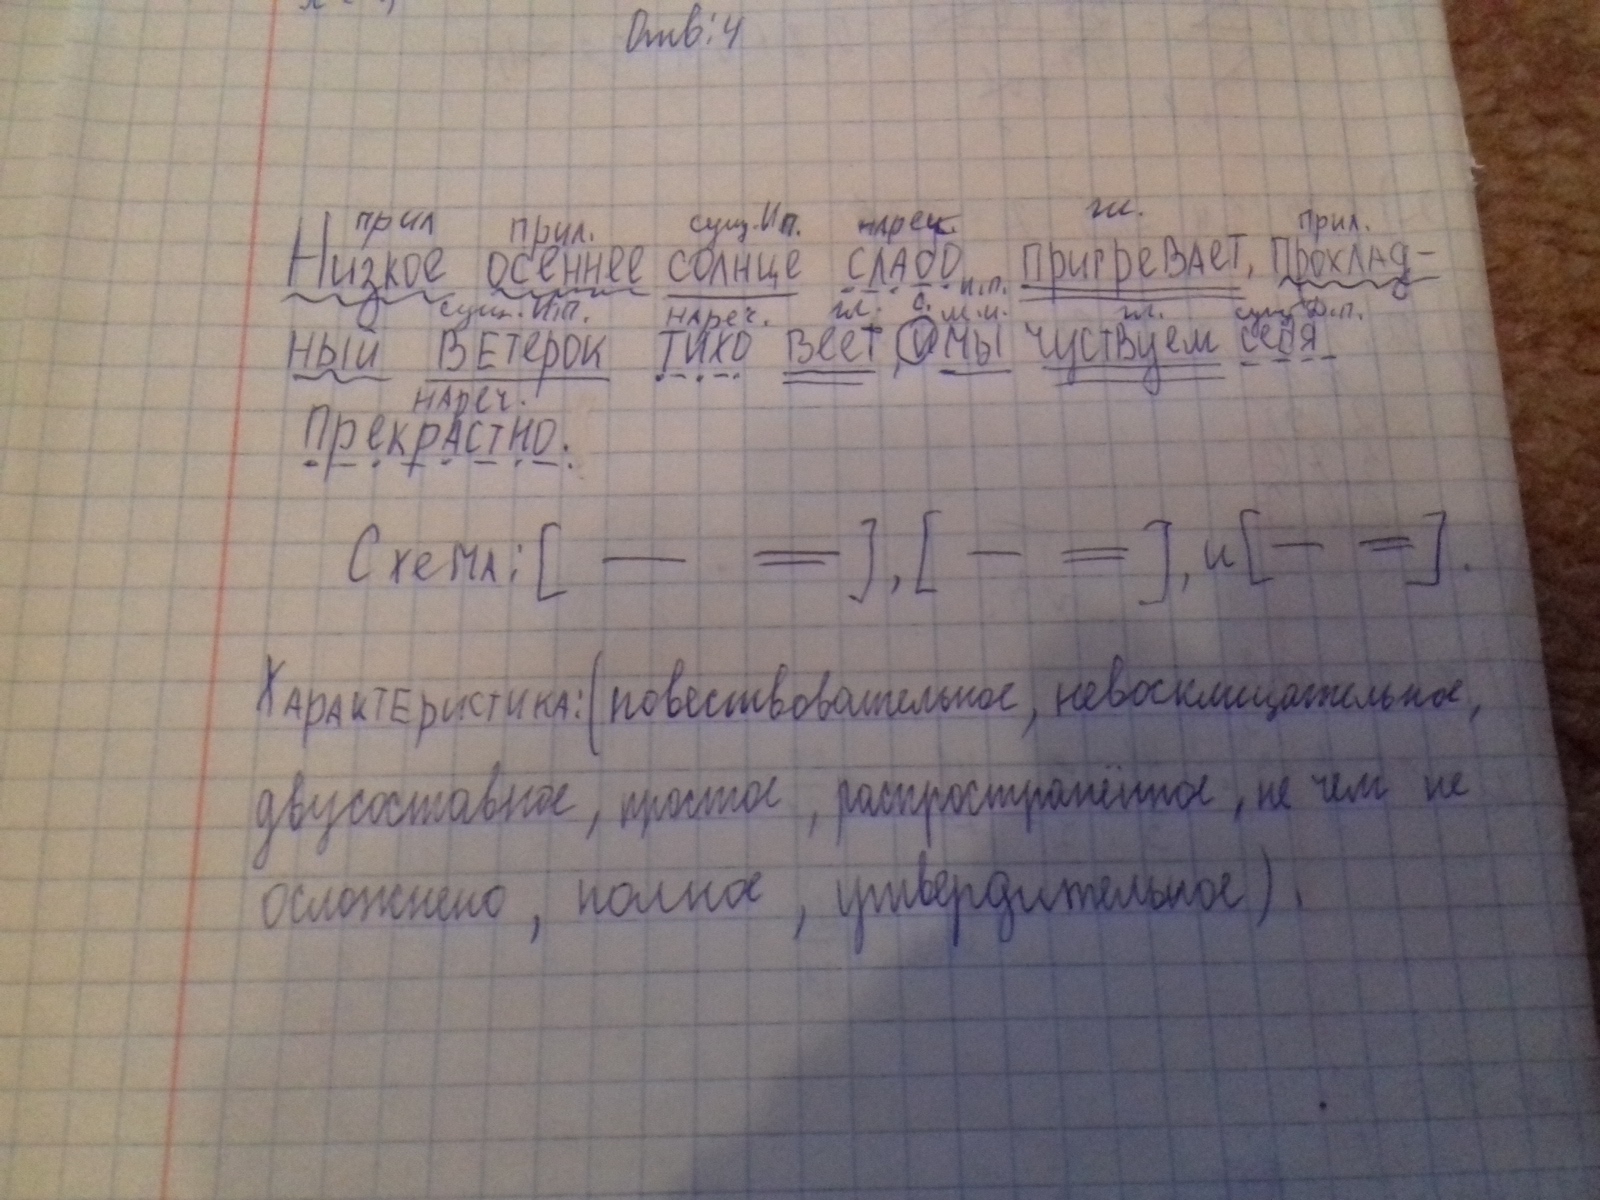 Отв: 4
прил прил. сущ. Ип. нареч. гл. прил.
Низкое осеннее солнце слабо пригревает, прохлад-
сущ. И.п. нареч. гл. с. м.и. и.п. гл. сущ Д.п.
ный ветерок тихо веет, и мы чуствуем себя
нареч.
прекрастно.
Схема: [ — = ], [ — = ], и [ — = ].
Характеристика: (повествовательное, невосклицательное,
двусоставное, простое, распространённое, не чем не
осложнено, полное, утвердительное).